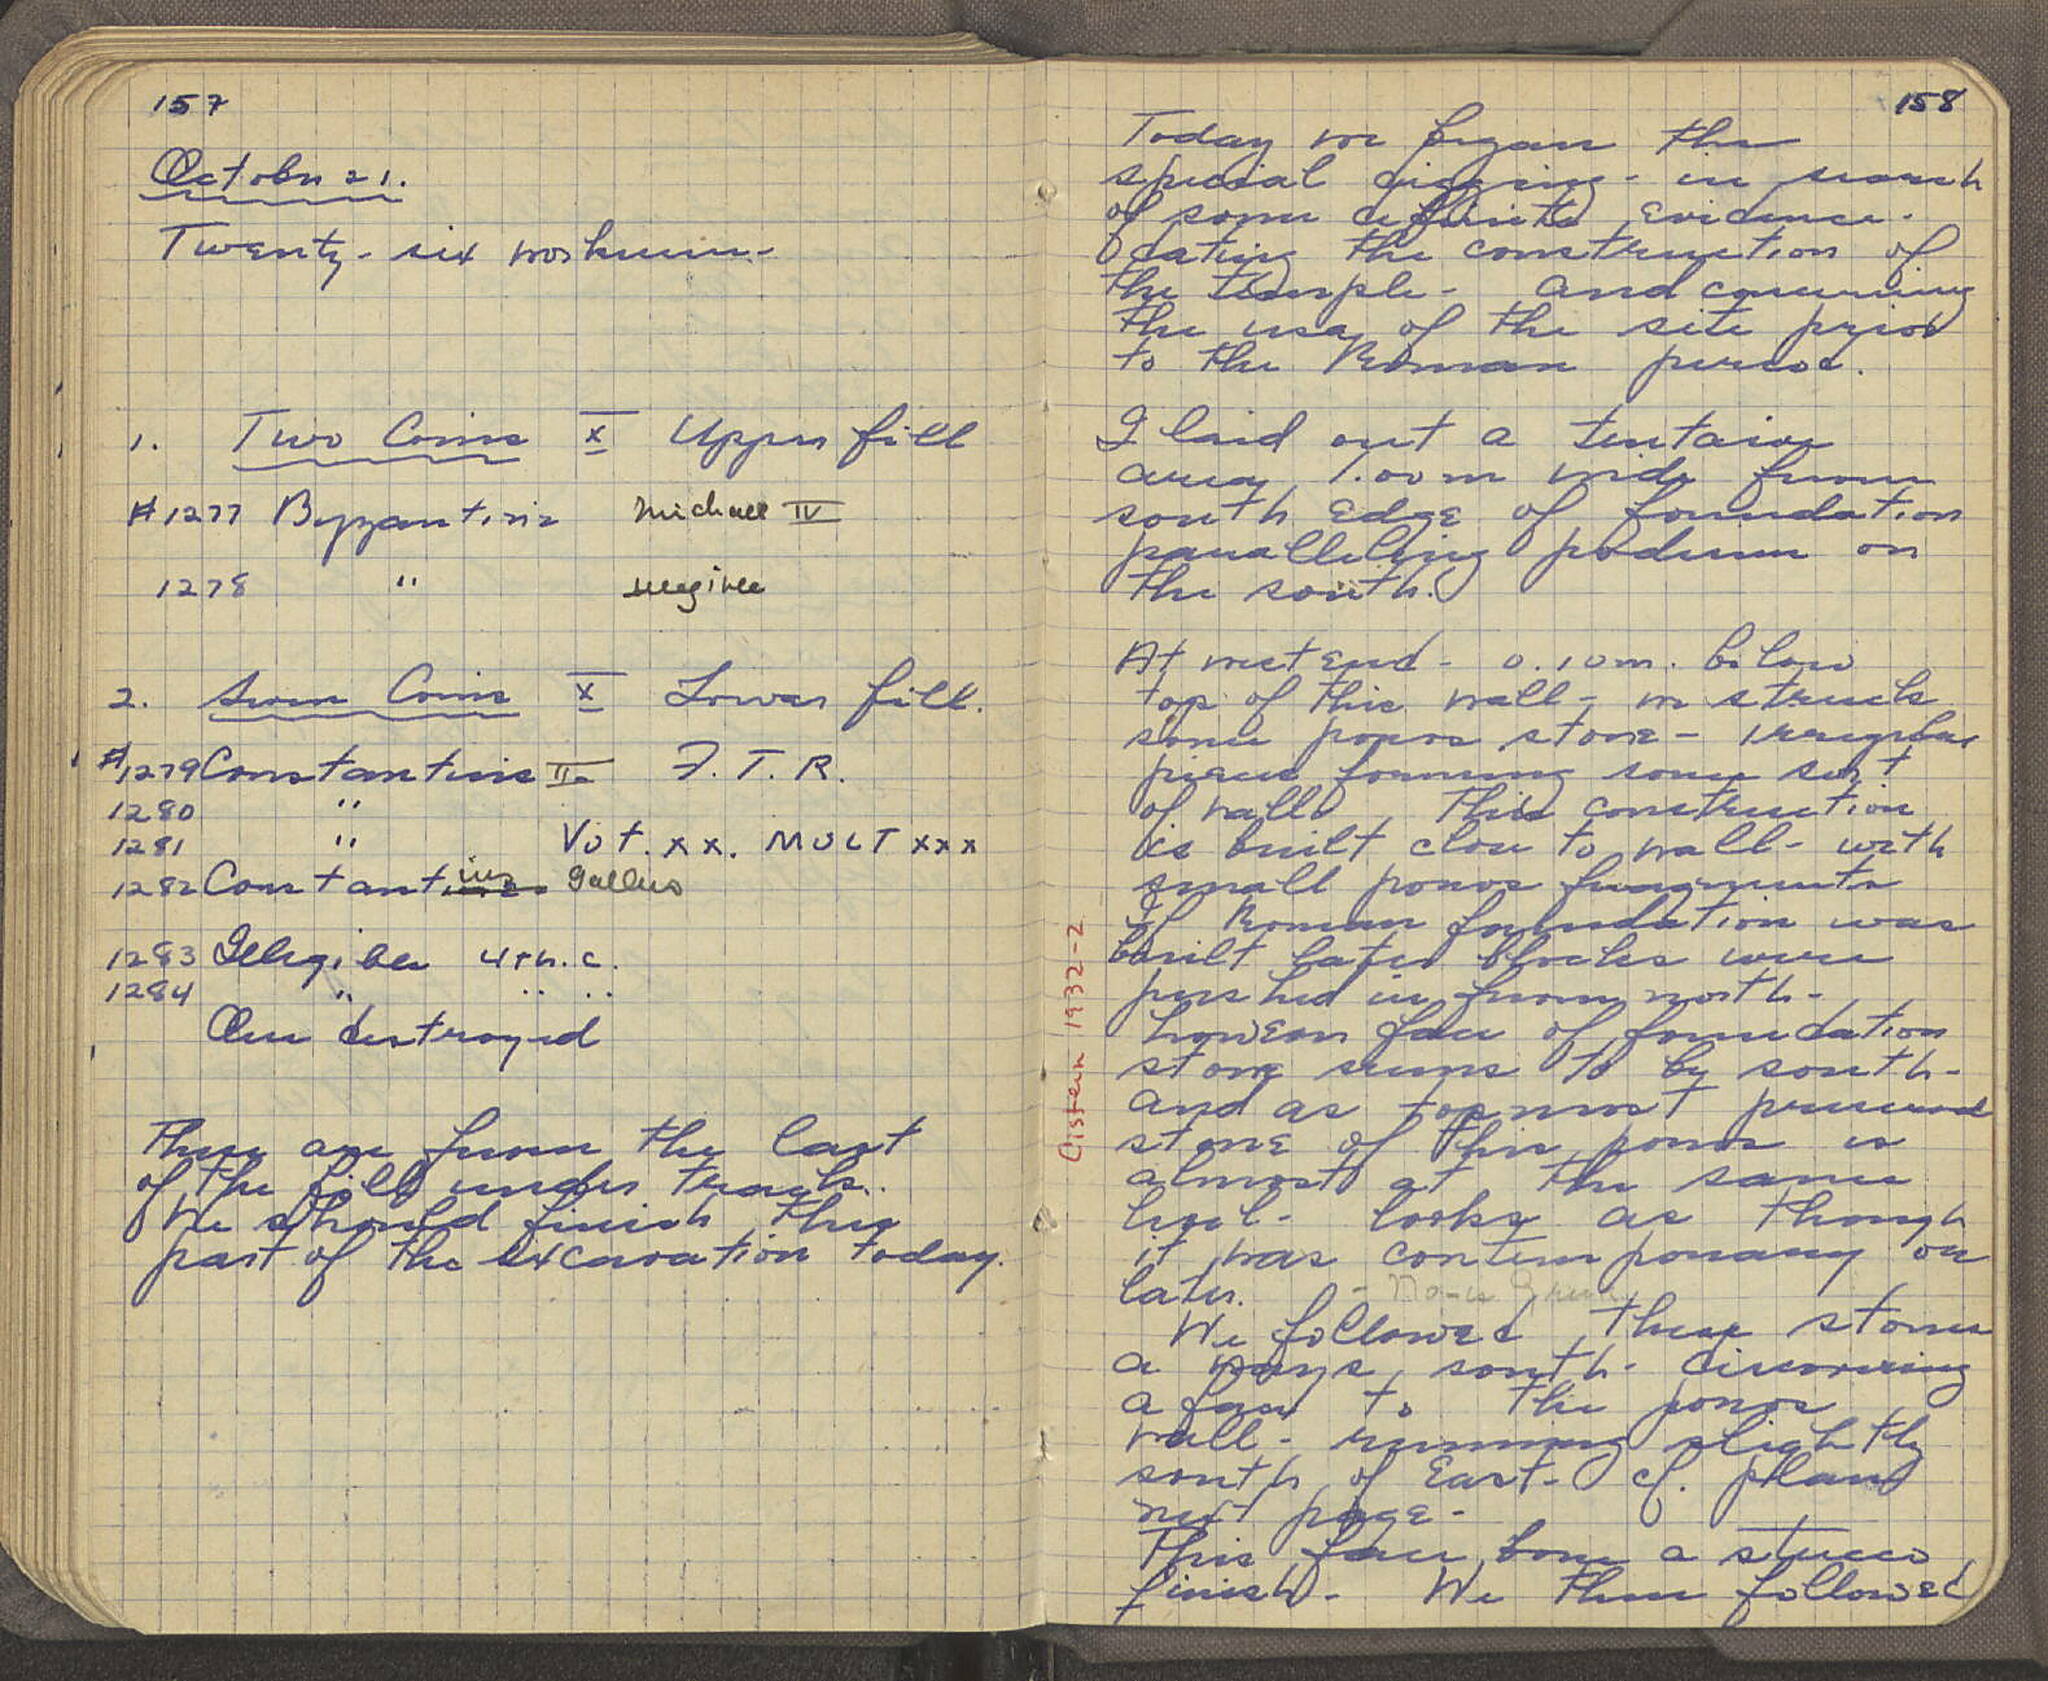 157
October 21.
Twenty-six workmen-
1. Two Coins X Upper fill
#1277 Byzantine Michael IV
1278 " illegible
2. Seven Coins X Lower fill.
#1279 Constantine II F. T. R.
1280 "
1281 " Vot. XX. MULT XXX
1282 Constantius Gallus
1283 Illegible 4th. c.
1284 " " "
One destroyed
These are from the last
of the fill under track.
We should finish this
part of the excavation today.
158
Today we began the
special digging- in search
of some definite evidence-
dating the construction of
the temple- and concerning
the use of the site prior
to the Roman period.
I laid out a tentaive
area 1.00m wide from
south edge of foundation
paralleling podium on
the south.
At west end- 0.10m. below
top of this wall- we struck
some poros stone- irregular
pieces forming some sort
of wall. This construction
is built close to wall- with
small poros fragments
If Roman foundation was
built later blocks were
pushed in from north-
however face of foundation
stone seems to be south-
and as topmost preserved
stone of this poros is
almost at the same
level- looks as though
it was contemporary or
later.
We followed these stones
a ways south- discovering
a face to the poros
wall- running slightly
south of East- cf. plan
next page-
This face bore a stucco
finish- We then followed
Cistern 1932-2